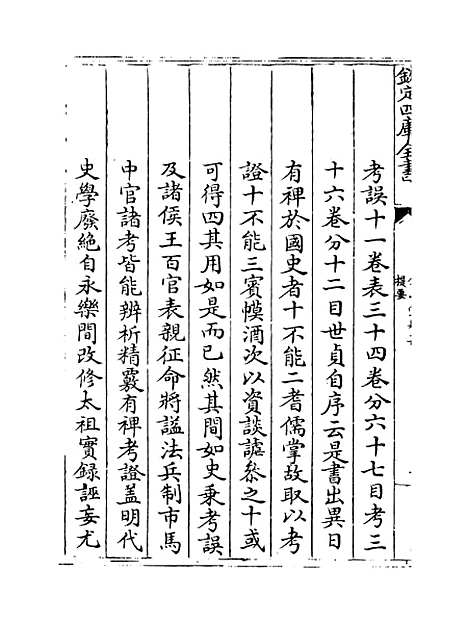 欽定四庫全書
提要
考誤十一卷表三十四卷分六十七目考三
十六卷分十二目世貞自序云是書出異日
有裨於國史者十不能二耆儒掌故取以考
證十不能三賓幙酒次以資談謔參之十或
可得四其用如是而已然其間如史乗考誤
及諸侯王百官表親征命將謚法兵制市馬
中官諸考皆能辨析精覈有裨考證蓋明代
史學廢絶自永樂間改修太祖實録誣妄尤